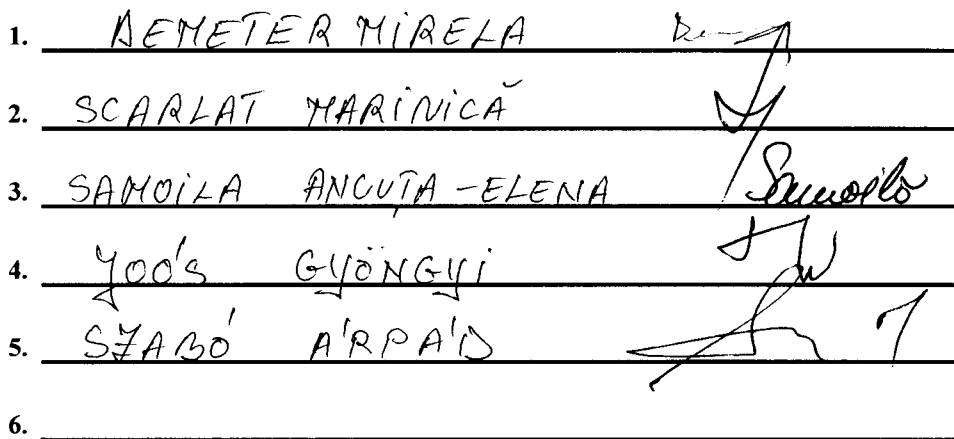 1. DEMETER MIRELA
2. SCARLAT MARINICĂ
3. SAMOILA ANCUȚA-ELENA Samoilă
4. JOÓS GYÖNGYI
5. SZABÓ ÁRPÁD
6.